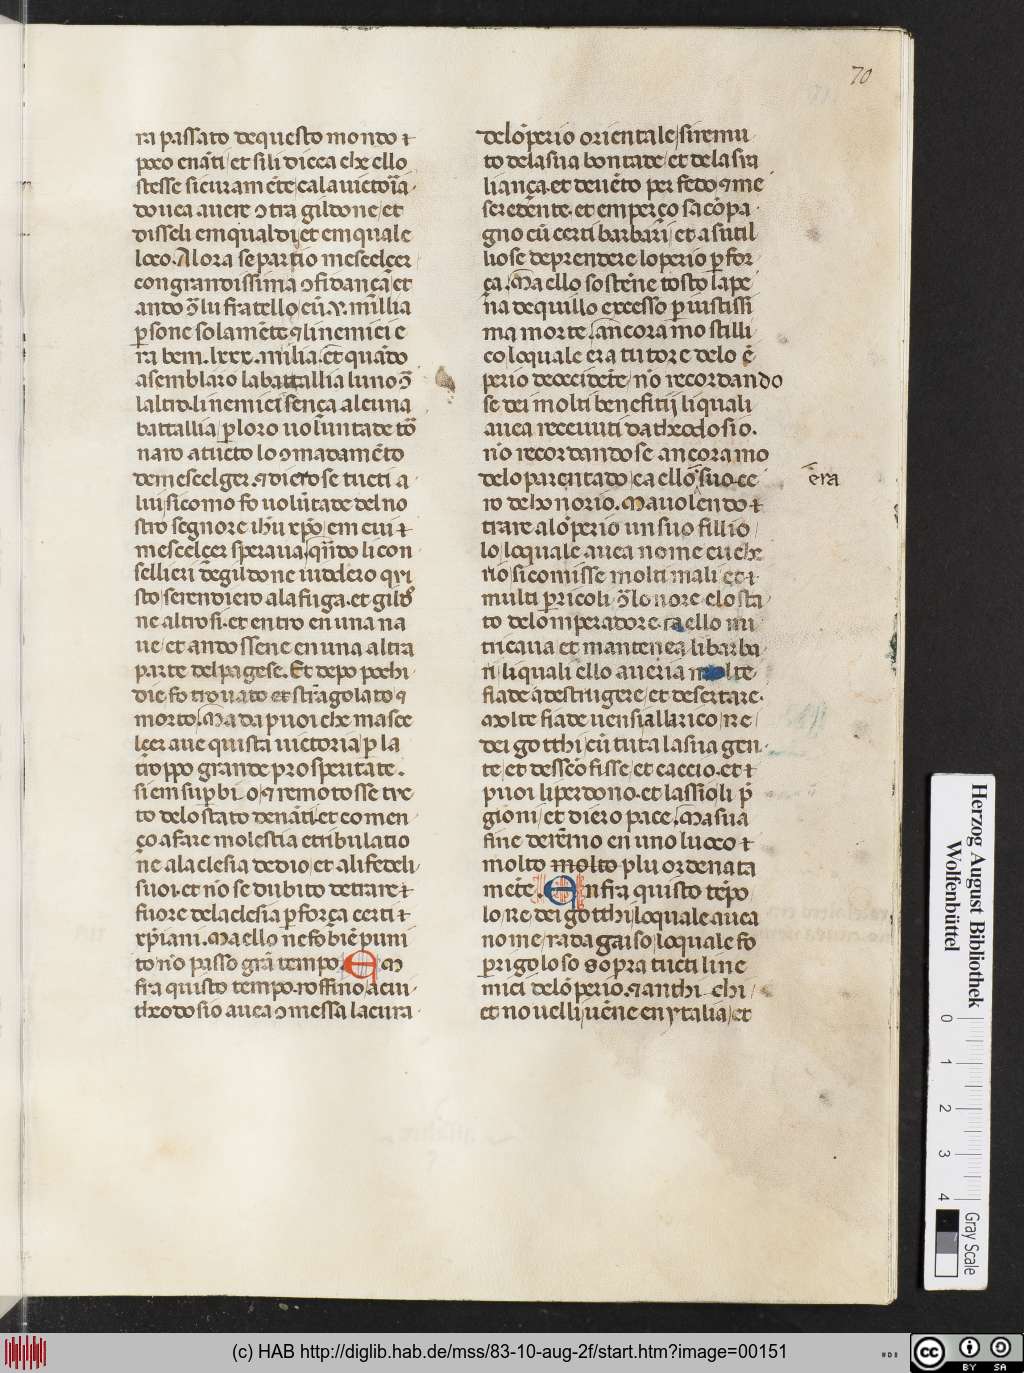 70
ra passato dequesto mondo ⁊
poco enãti/et sili dicea che ello
stesse sicuramẽte/calauictoria
douea auere ↄtra gildone/et
disseli emqual di/et emquale
loco. Alora se partio mescelçer
con grandissima ↄfidança/et
ando ↄ̃lu fratello/cũ .V. millia
ꝑsone solamẽte/⁊ li nemici e
ra bem .lxxx. milia. et quãdo
asemblaro labattallia luno ↄ̃
laltro. li nemici sença alcuna
battallia/ꝑ loro uoluntade tõ
naro atucto lo ↄmãdamẽto
demescelçer.⁊ dierose tucti a
lui/sicomo fo uolũtade del no
stro segnore ihũ xpõ/em cui ⁊
mescelçer speraua. quãdo li con
sellieri degildone uiddero qui
sto/serendiero ala fuga. et gildo
ne altrosi. et entro en una na
ue/et andossene en una altra
parte del pagese. Et depo pochi
die fo trouato et strãgolato ⁊
morto. Ma da puoi che masce
lçer aue quista uictoria/ꝑ la
troppo grande prosperitate.
si em suꝑbio/⁊ remotosse tve
to delo stato denãti. et comen
ço afare molestia et tribulatio
ne ala clesia de dio/et ali fedeli
suoi. et nõ se dubito de trare ⁊
fuore dela clesia ꝑ força certi ⁊
xp̃iani. Ma ello ne fo biẽ puni
to/nõ passo grã tempo. E m
fra quisto tempo. roffino/acui
theodosio auea ↄmessa lacura
delõperio orientale/siremu
to dela sua bontade/et dela sua
liança. et deuẽto perfedo ⁊ me
seredẽnte. et emperço sacõpa
gno cũ certi barbari/et asutil
liose deprendere loperio ꝑ for
ça. Ma ello sostẽne tosto la pe
na de quillo excesso ꝑ uistissi
ma morte. ancoramo stilli
co loquale era tutore delo ẽ
perio de occidẽte/nõ recordando
se dei molti benefitij liquali
auea receuuti da theodosio.
nõ recordandose ancoramo
delo parentado/ca ello suo ce
era
ro de honorio. Ma uolendo ⁊
trare alõperio un suo fillio
lo/loquale auea nome euche
nõ si comisse molti mali et ⁊
multi ꝑicoli ↄ̃ lo nore elo sta
to delõmperadore. ca ello nu
tricaua et mantenea li barba
ri liquali ello auería molte
fiade adestrugere/et desertare.
molte fiade uensi allarico/re
dei gotthi/cũ tuta la sua gen
te/et descõfisse/et caccio. et ⁊
puoi li perdono. et lassioli ꝑ
gioni/et diero pace. Ma sua
fine deremo en uno luoco ⁊
molto molto plu ordenata
mẽte. Enfra quisto tẽpo
lo/re dei gotthi/loquale auea
nome/radagaiso/loquale fo
ꝑrigoloso sopra tucti li ne
mici delõperio. ⁊ anthi chi
et nouelli/uẽne en ytalia/et
Herzog August Bibliothek
Wolfenbüttel
0 1 2 3 4
Gray Scale
(c) HAB http://diglib.hab.de/mss/83-10-aug-2f/start.htm?image=00151
cc BY SA